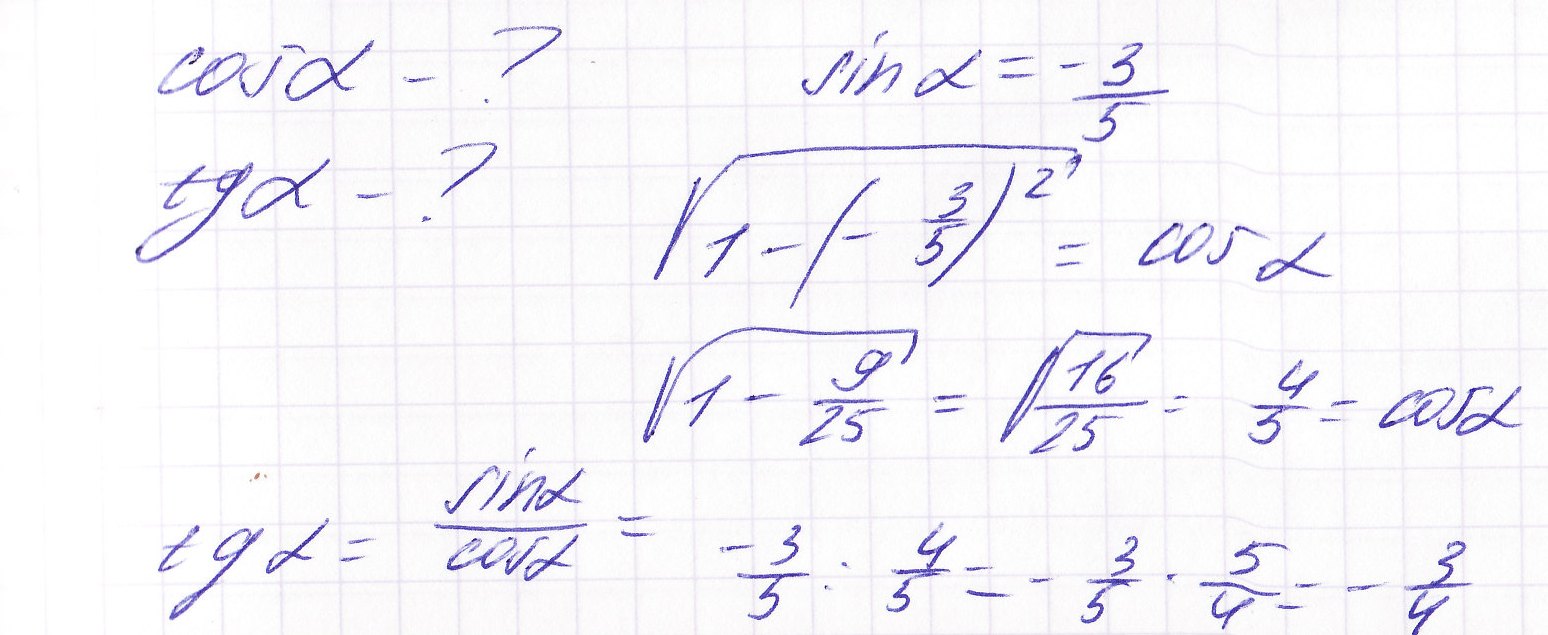 cosα - ? sinα = -3/5
tgα - ? √(1 - (-3/5)²) = cosα
√(1 - 9/25) = √(16/25) = 4/5 = cosα
tgα = sinα/cosα = -3/5 : 4/5 = -3/5 · 5/4 = -3/4